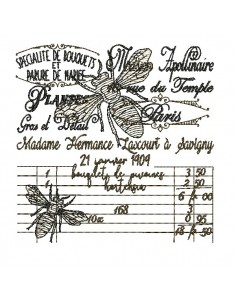 SPECIALITE DE BOUQUETS
ET
PARURE DE MARIEE
Maison Apollinaire
rue du Temple
PLANTES
Paris
Gros et Détail
Madame Hermance Lascourt à Savigny
21 janvier 1904
1 bouquets de pivoines 3 50
1 hortensia 6 00
168 3
10x 0 95
18 50